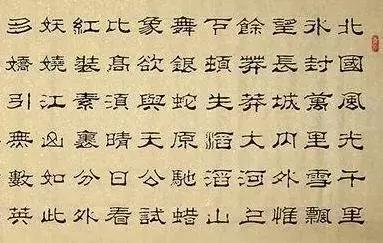 北國風光千里
冰封萬里雪飄
望長城内外惟
餘莽莽大河上
下頓失滔滔山
舞銀蛇原馳蜡
象欲與天公試
比高須晴日看
紅裝素裹分外
妖嬈江山如此
多嬌引無數英